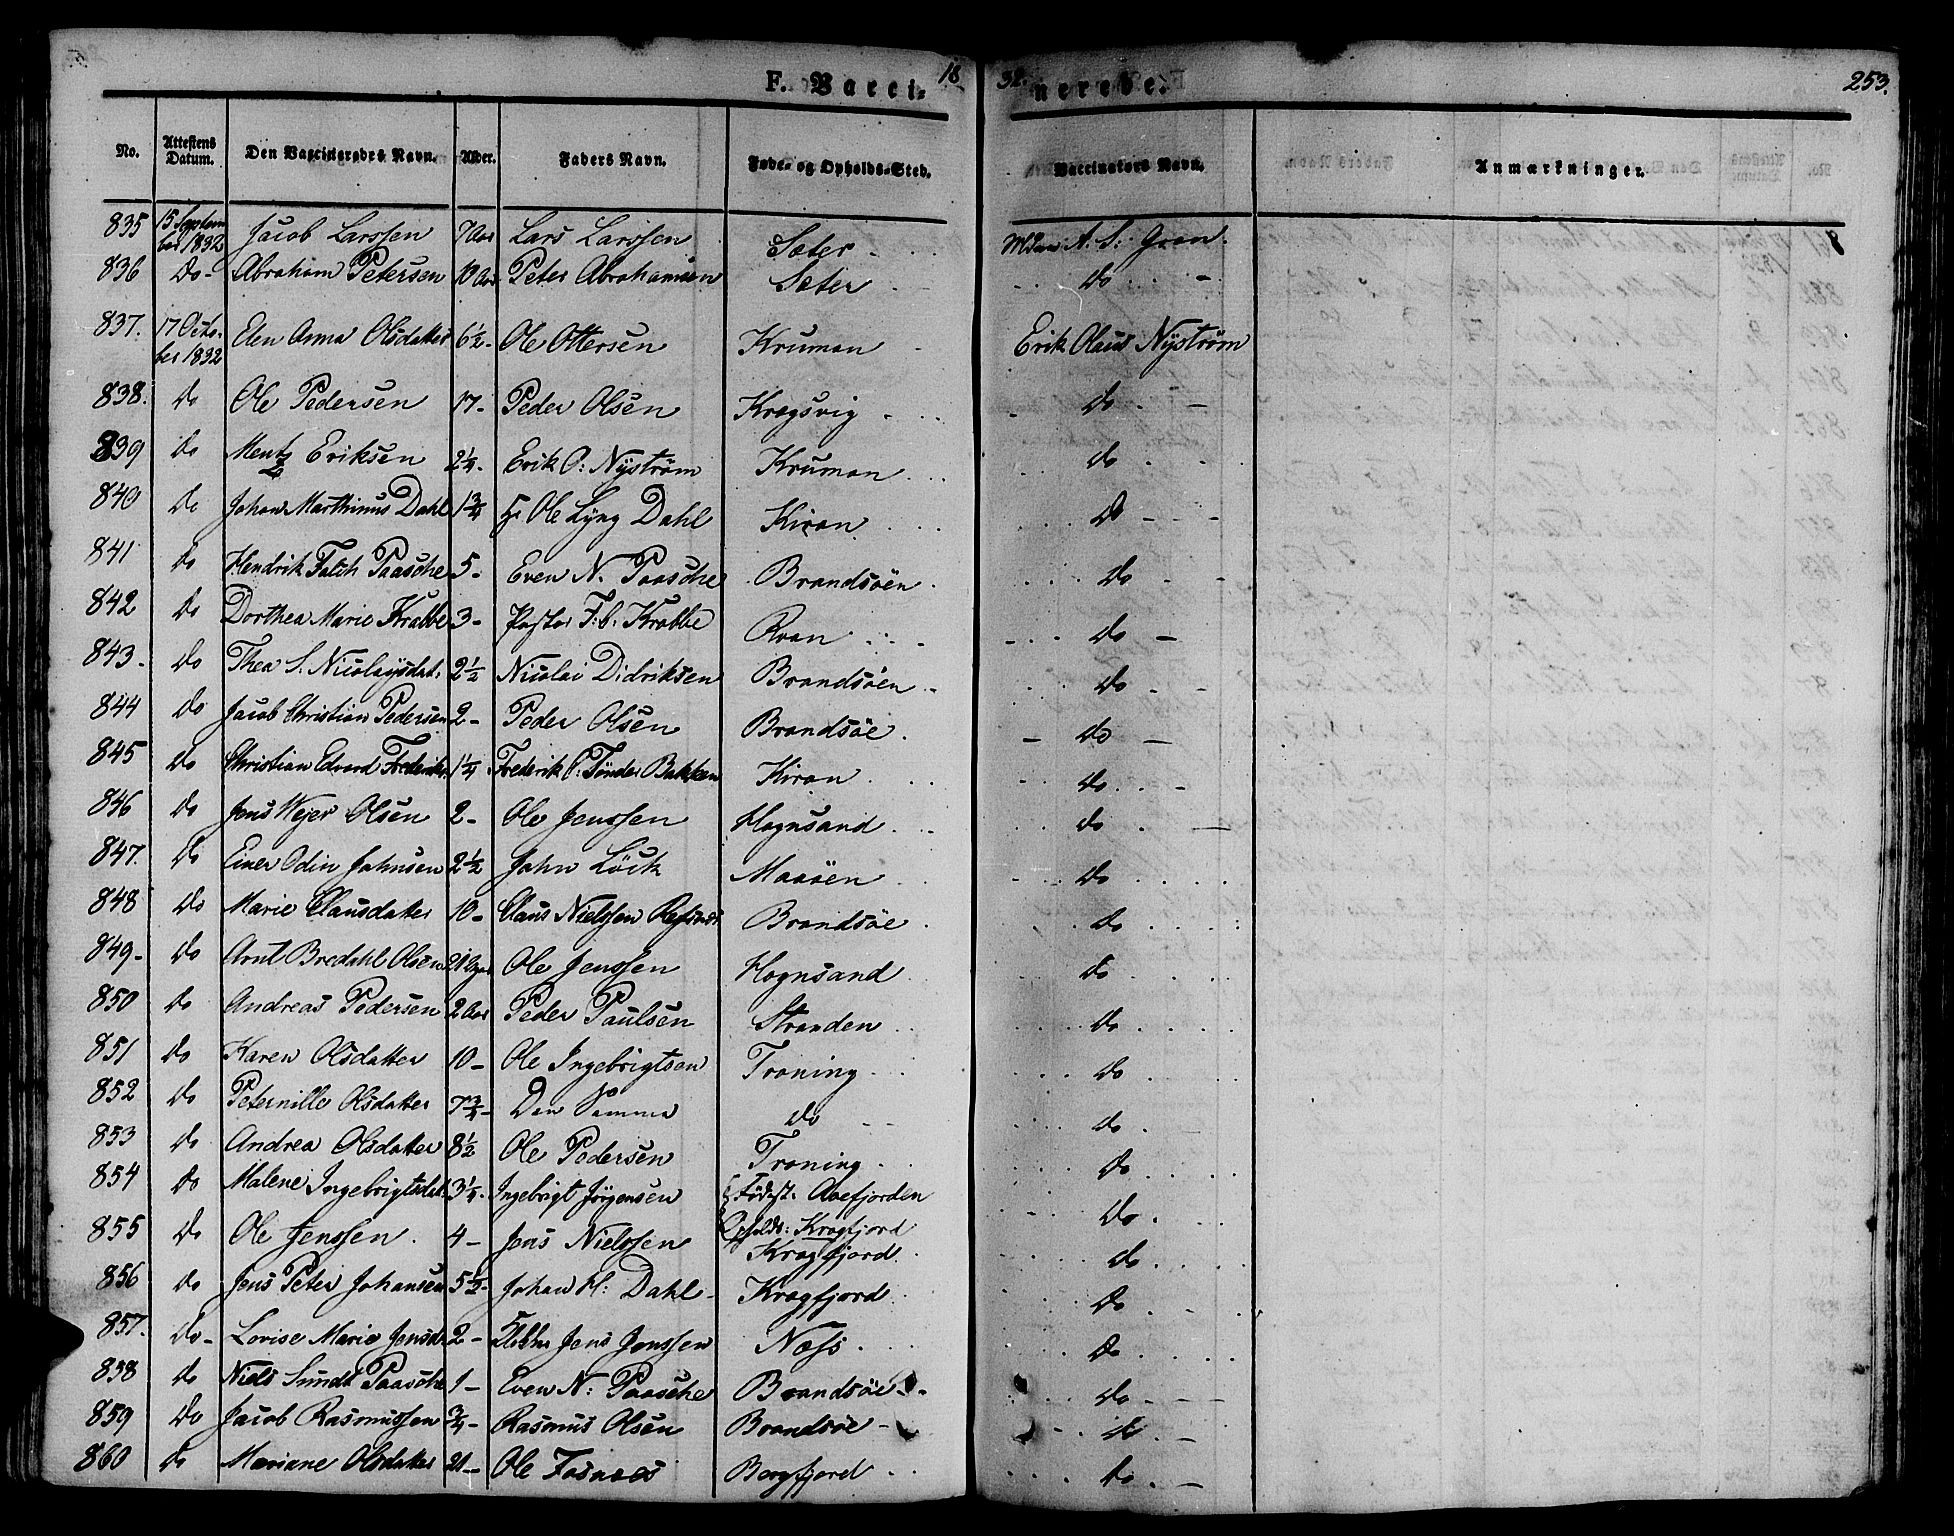 F. Vacci- 18
32. nerede. 253.
No. Attestens Datum. Den Vaccineredes Navn. Alder. Faders Navn. Føde- og Opholds-Sted. Vaccinators Navn. Anmærkninger.
835 15 Septem ber 1832 Jacob Larssen 7 Aar Lars Larssen Sæter A. S: Gran.
836 do- Abraham Petersen 10 Aar Peter Abrahamsen Sæter do
837. 17 Octo- ber 1832 Elen Anna Olsdatter 6½- Ole Ottersen Kruman Erik Olaus Nyström
838. do Ole Pedersen 17- Peder Olsen Kragsvig do
839 do Mentz Eriksen 2¼- Erik O: Nyström Kruman do
840 do Johan Marthinus Dahl 1¾ Hr Ole Lyng Dahl Kiran do
841 do Hendrik Falch Paasche 5- Even N. Paasche Brandsöen do
842 do Dorthea Marie Krabbe 3- Pastor F. b. Krabbe Roan do
843. do Thea S. Nicolaysdat. 2½ Nicolai Didriksen Brandsöen do
844 do Jacob Christian Pedersen 2- Peder Olsen Brandsöe do
845 do Christian Edvard Frederiks 1¼ Frederik C: Tönder Bakken Kiran do
846 do Jens Wejer Olsen 2- Ole Jenssen Hognsand do
847. do Einer Odin Johnsen 2½ John Löck Maasöen do
848 do Marie Clausdatter 10- Claus Nielssen Refsnes Brandsöe do
849- do Arnt Bredahl Olsen 21 Uger Ole Jenssen Hognsand do
850 do Andreas Pedersen 2 Aar Peder Paulsen Stranden do
851 do Karen Olsdatter 10- Ole Ingebrigtsen Traning do
852 do Peternille Olsdatter 7¾- Den Samme do do
853 do Andrea Olsdatter 8½ Ole Pedersen Traning do
854 do Malene Ingebrigtsdat. 3¼- Ingebrigt Jörgensen Födest. Aaefjorden Opholds: Kragfjord do
855 do Ole Jenssen. 4- Jens Nielssen Kragfjord. do
856 do Jens Peter Johansen 5½- Johan H: Dahl- Kragfjord do
857. do- Lovise Marie Jensd. 2- Jens Jenssen Næss do
858 do Niels Sundt Paasche 1- Even N: Paasche Brandsöe- do
859 do Jacob Rasmussen ¾- Rasmus Olsen Brandsöe- do
860 do Mariane Olsdatter 21- Ole Fosnaes Bergfjord do